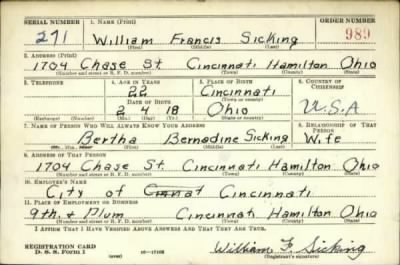 SERIAL NUMBER 1. NAME (Print) ORDER NUMBER
271 William Francis Sicking 989
(First) (Middle) (Last)
2. ADDRESS (Print)
1704 Chase St. Cincinnati Hamilton Ohio
(Number and street or R. F. D. number) (Town) (County) (State)
3. TELEPHONE 4. AGE IN YEARS 5. PLACE OF BIRTH 6. COUNTRY OF CITIZENSHIP
22 Cincinnati
DATE OF BIRTH (Town or county)
2 4 18 Ohio U.S.A
(Exchange) (Number) (Mo.) (Day) (Yr.) (State or country)
7. NAME OF PERSON WHO WILL ALWAYS KNOW YOUR ADDRESS 8. RELATIONSHIP OF THAT PERSON
Bertha Bernadine Sicking Wife
(Mr., Mrs., Miss) (First) (Middle) (Last)
9. ADDRESS OF THAT PERSON
1704 Chase St. Cincinnati Hamilton Ohio
(Number and street or R. F. D. number) (Town) (County) (State)
10. EMPLOYER'S NAME
City of Cinnat Cincinnati
11. PLACE OF EMPLOYMENT OR BUSINESS
9th & Plum Cincinnati Hamilton Ohio
(Number and street or R. F. D. number) (Town) (County) (State)
I AFFIRM THAT I HAVE VERIFIED ABOVE ANSWERS AND THAT THEY ARE TRUE.
REGISTRATION CARD William F. Sicking
D. S. S. Form 1 (over) (Registrant's signature)